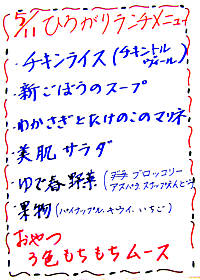 5/11 ひろがりランチメニュー
・チキンライス(チキントル
ヴィール)
・新ごぼうのスープ
・わかさぎとたけのこのマリネ
・美肌サラダ
・ゆで春野菜(ブロッコリー
アスパラ、スナップえんどう)
・果物(パイナップル、キウイ、いちご)
おやつ
3色もちもちムース